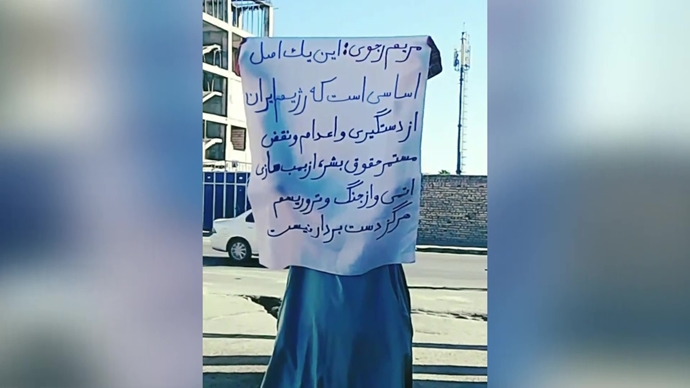 مریم رجوی: این یک اصل
اساسی است که رژیم ایران
از دستگیری و اعدام و نقض
مستمر حقوق بشر، از بمب سازی
اتمی و از جنگ و تروریسم
هرگز دست بردار نیست